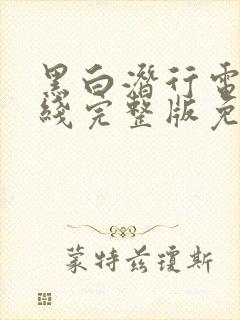 黑白潛行電
綫完整版免
蒙特兹瓊斯